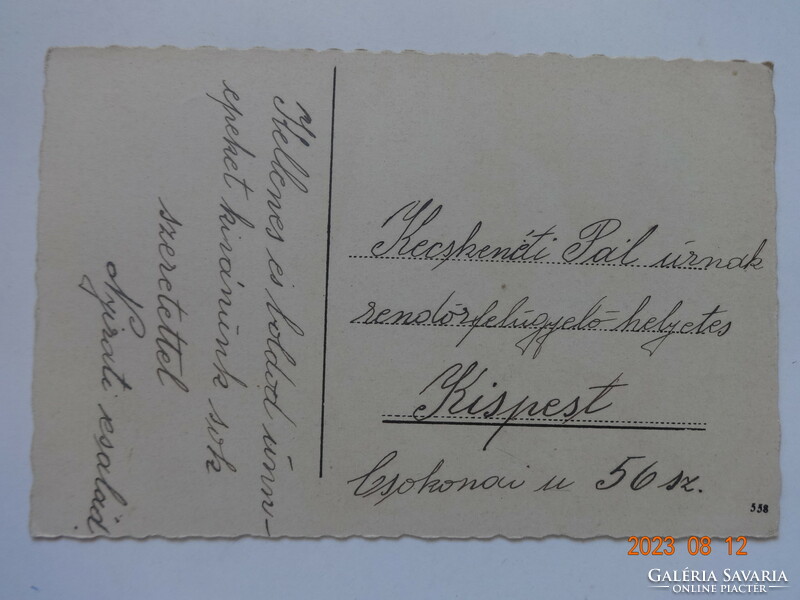 Kellenes és boldod ünn-
epeket kivánunk sok
szeretettel
Nyirati család
Kecskenéti Pál úrnak
rendőrfelügyelő-helyetes
Kispest
Csokonai u 56 sz.
558
2023 08 12
GALÉRIA SAVARIA
ONLINE PIACTÉR